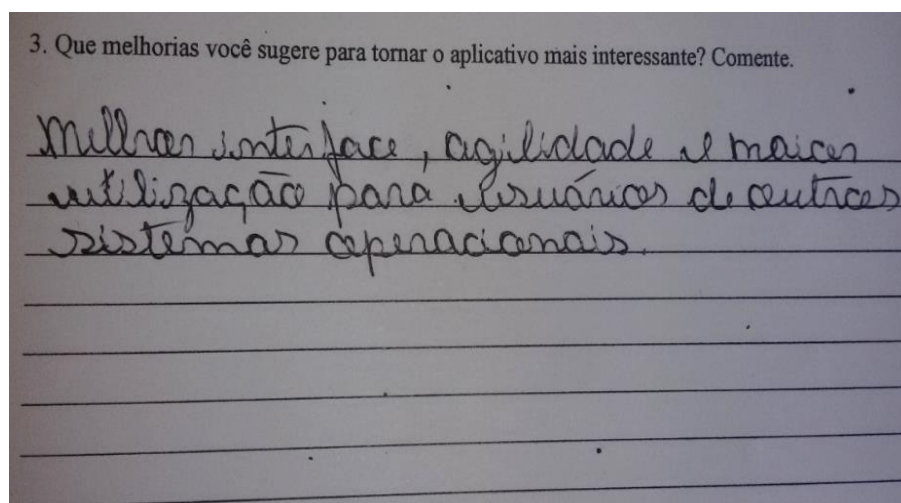 3. Que melhorias você sugere para tornar o aplicativo mais interessante? Comente.
Melhor interface, agilidade e maior
utilização para usuários de outros
sistemas operacionais.